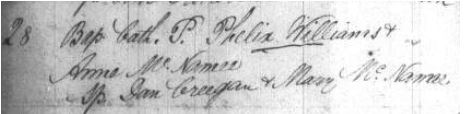 28 Bap Cath. P. Phelix Williams &
Anne Mc Namee
Sp Dan Creegan & Mary Mc Namee